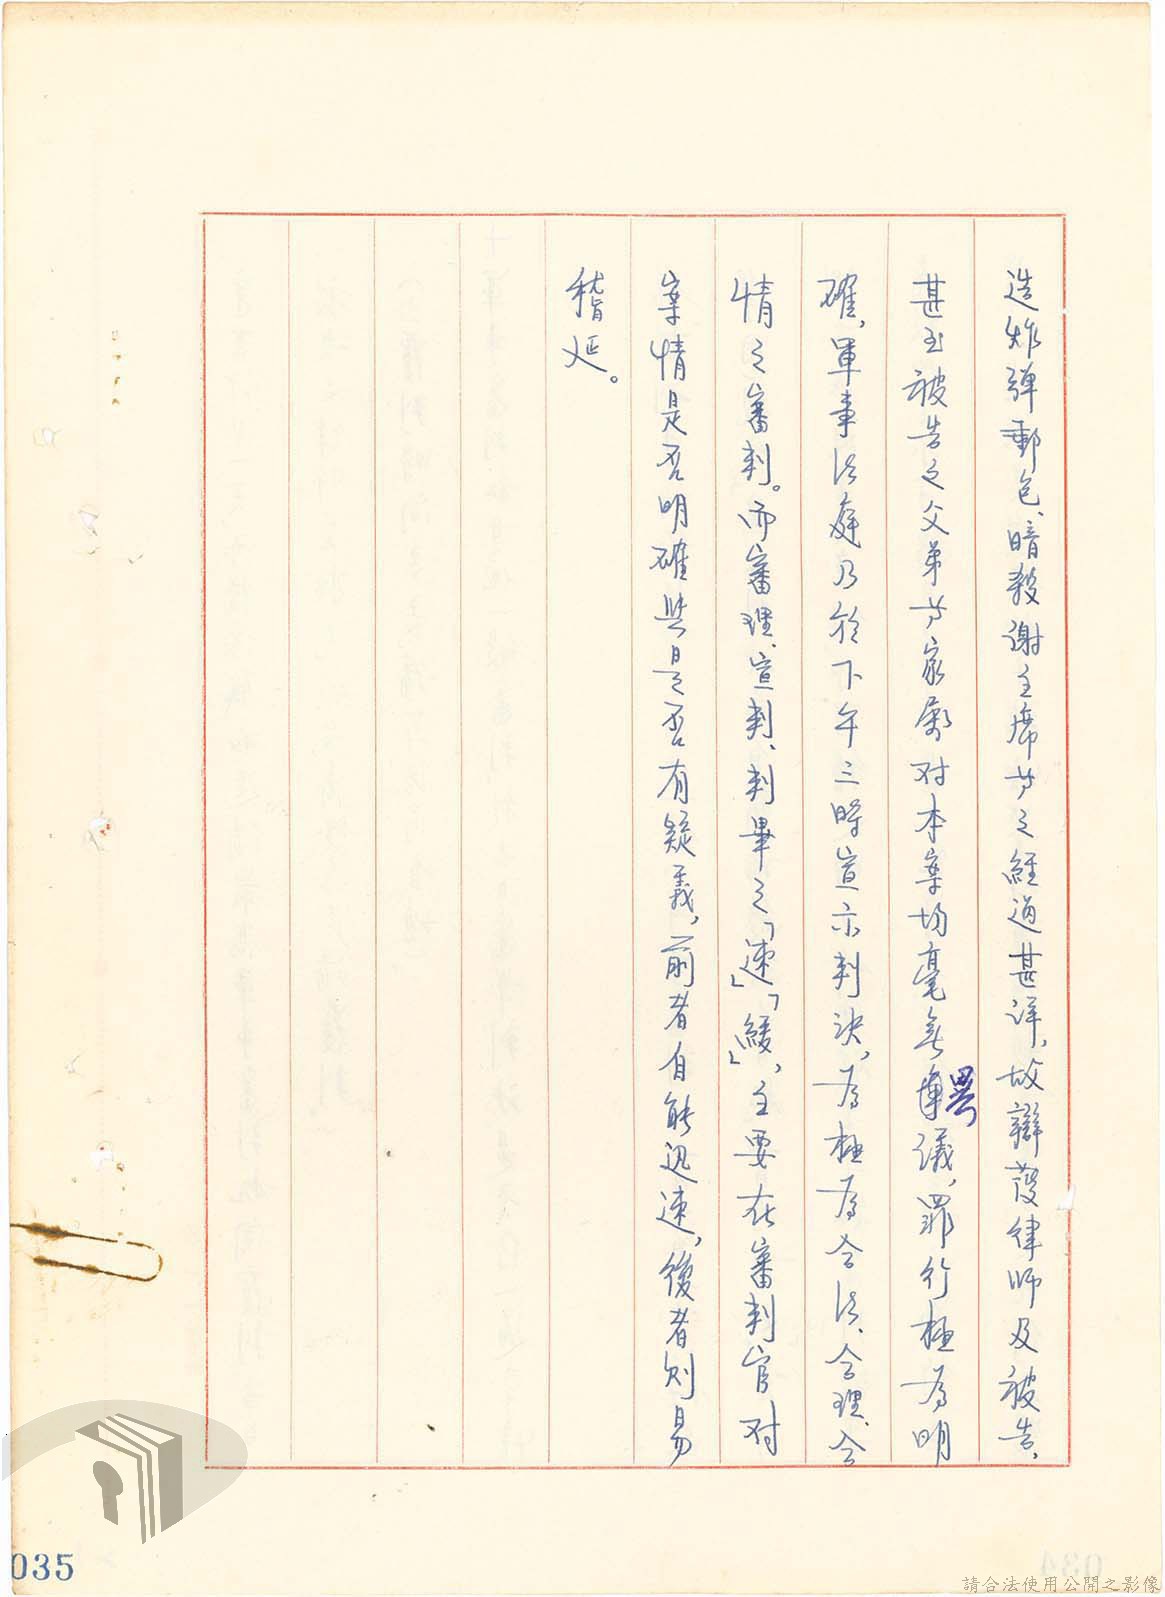 造炸彈郵包、暗殺謝主席等之經過甚詳,故辯護律師及被告,
甚至被告之父弟等家屬对本案均毫無異議,罪行極為明
確,軍事法庭乃於下午三時宣示判決,為極為合法、合理、合
情之審判。而審理、宣判、判畢之「速」「緩」,主要在審判官对
案情是否明確與是否有疑義,前者自能迅速,後者則易
稽延。
035
請合法使用公開之影像